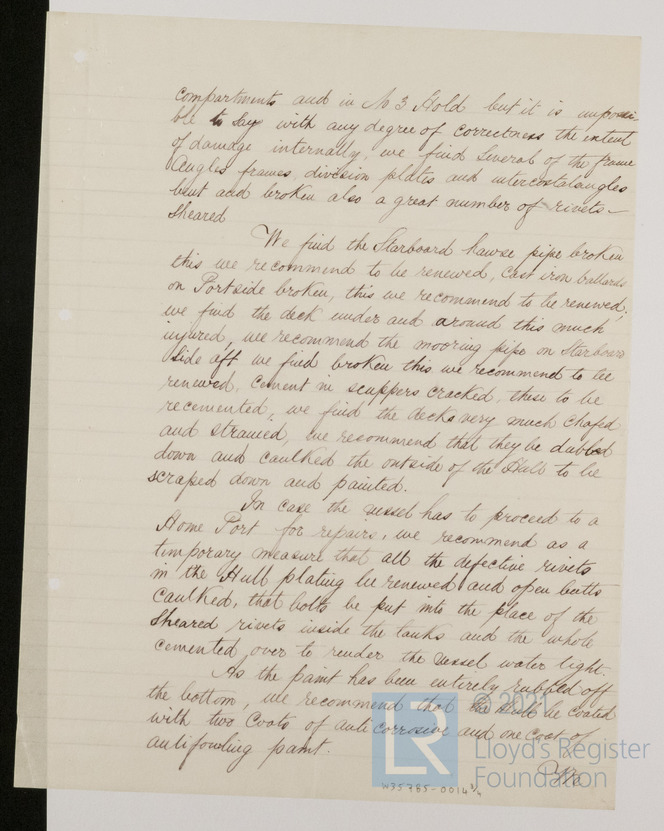 compartments and in No 3 Hold but it is impossi
ble to say with any degree of correctness the extent
of damage internally, we find several of the frame
Angles frames, division plates and intercostal angles
bent and broken also a great number of rivets
sheared
We find the Starboard hawse pipe broken
this we recommend to be renewed, Cast iron bollards
on Portside broken, this we recommend to be renewed.
we find the deck under and around this much
injured, we recommend the mooring pipe on Starboard
side aft we find broken this we recommend to be
renewed, cement in scuppers cracked, these to be
recemented, we find the decks very much chafed
and strained, we recommend that they be dubbed
down and caulked the outside of the Hull to be
scraped down and painted.
In case the vessel has to proceed to a
Home Port for repairs, we recommend as a
temporary measure that all the defective rivets
in the Hull plating be renewed and open butts
caulked, that bolts be put into the place of the
sheared rivets inside the tanks and the whole
cemented over to render the vessel water tight.
As the paint has been entirely rubbed off
the bottom, we recommend that the Hull be coated
with two Coats of anti corrosive and one coat of
antifouling paint.
We
© 2021
LR
Lloyd's Register
Foundation
W35785-0014 3/4